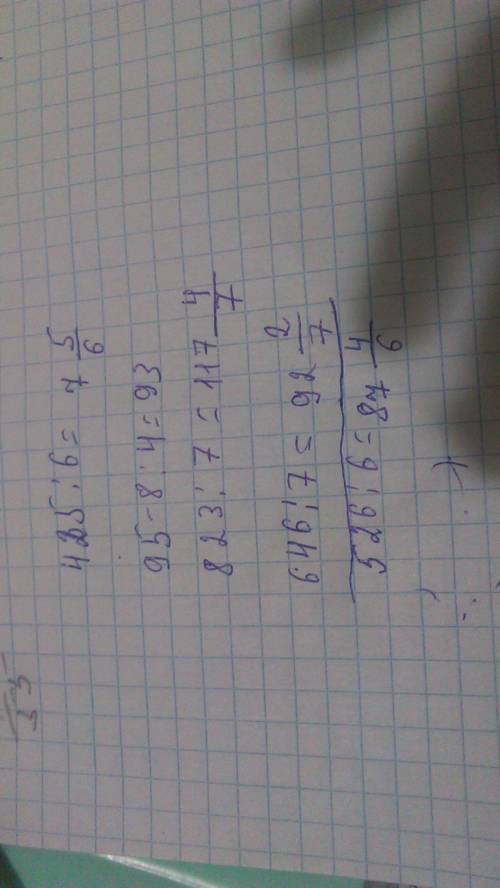 425:6= 7 5/6
95-8:4=93
823:7=117 4/7
646:7=92 2/7
526:6=87 4/6